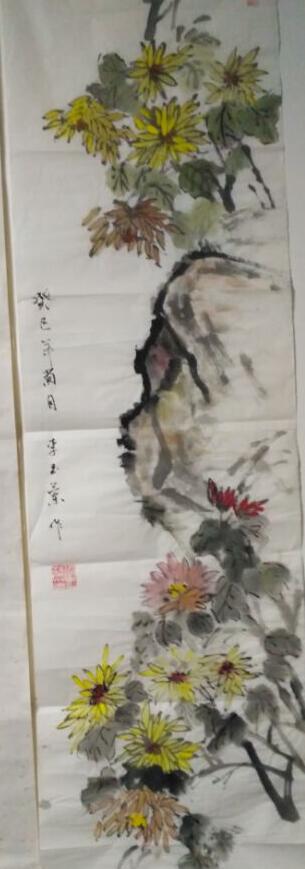 癸巳年菊月 李玉 作